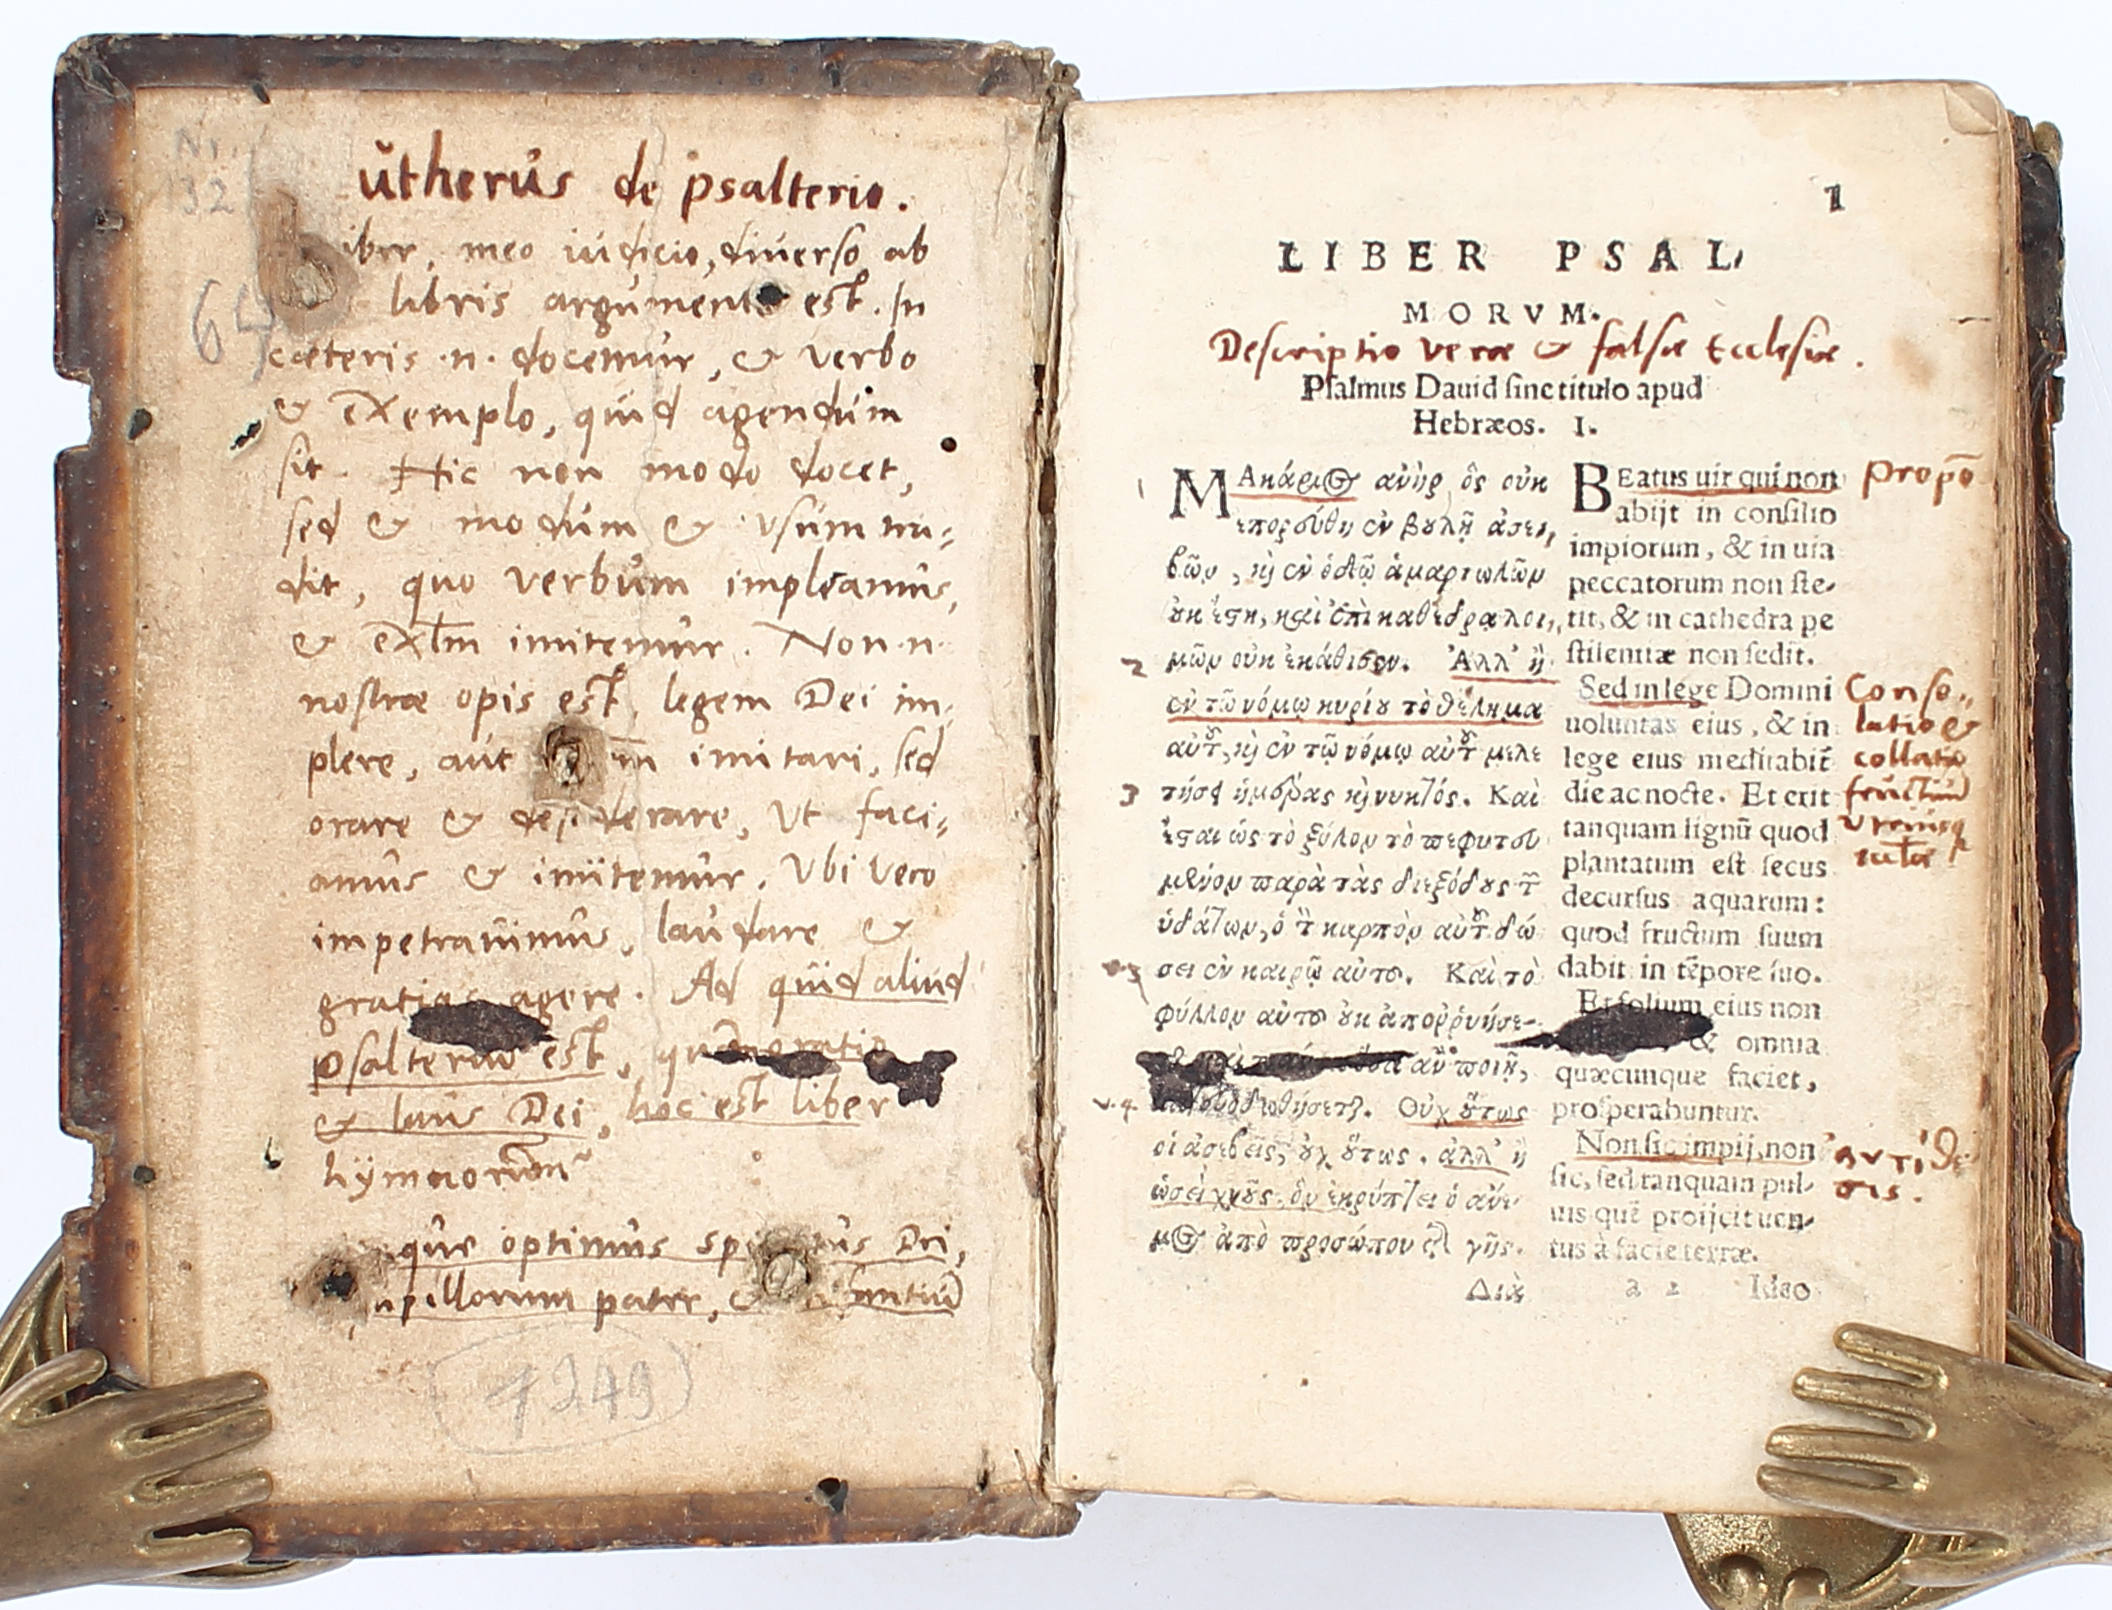 Nr.
132
64
ŭtherŭs de psalterio.
iber, meo iŭdicio, diŭerso ab
libris argŭmento est. In
cæteris .n. docemŭr, & verbo
& exemplo, qŭid agendŭm
sit. Hic non modo docet,
sed & modŭm & vsŭm tra-
dit, qŭo verbŭm impleamŭs,
& exlm imitemŭr. Non .n.
nostræ opis est, legem Dei im-
plere, aŭt imitari, sed
orare & desyderare, vt faci-
amŭs & imitemŭr. Vbi vero
impetraŭimŭs, laŭdare &
gratias agere. Ad qŭid aliŭd
psalteriŭ est, oratio
& laŭs Dei, hoc est liber
hymnorŭm
qŭe optimŭs Dei,
pater, &
1249
1
LIBER PSAL-
MORVM.
Descriptio veræ & falsæ Ecclesiæ.
Psalmus Dauid sine titulo apud
Hebræos. I.
ΜΑκάριος ἀνὴρ ὃς οὐκ
ἐπορεύθη ἐν βουλῇ ἀσε-
βῶν, καὶ ἐν ὁδῷ ἁμαρτωλῶν
οὐκ ἔστη, καὶ ἐπὶ καθέδρᾳ λοι-
2 μῶν οὐκ ἐκάθισεν. Ἀλλ' ἢ
ἐν τῷ νόμῳ κυρίου τὸ θέλημα
αὐτοῦ, καὶ ἐν τῷ νόμῳ αὐτοῦ μελε
3 τήσει ἡμέρας καὶ νυκτός. Καὶ
ἔσται ὡς τὸ ξύλον τὸ πεφυτευ
μένον παρὰ τὰς διεξόδους τῶν
ὑδάτων, ὃ τὸν καρπὸν αὐτοῦ δώ
σει ἐν καιρῷ αὐτοῦ. Καὶ τὸ
φύλλον αὐτοῦ οὐκ ἀποῤῥυήσε-
ὅσα ἂν ποιῇ,
v.4. κατευοδωθήσεται. Οὐχ οὕτως
οἱ ἀσεβεῖς, οὐχ οὕτως. ἀλλ' ἢ
ὡσεὶ χνοῦς, ὃν ἐκρίπτει ὁ ἄνε-
μος ἀπὸ προσώπου τῆς γῆς.
Διὰ
BEatus uir qui non
abijt in consilio
impiorum, & in uia
peccatorum non ste-
tit, & in cathedra pe
stilentiæ non sedit.
Sed in lege Domini
uoluntas eius, & in
lege eius meditabit̃
die ac nocte. Et erit
tanquam lignũ quod
plantatum est secus
decursus aquarum:
quod fructum suum
dabit in tẽpore suo.
Et folium eius non
& omnia
quæcunque faciet,
prosperabuntur.
Non sic impij, non
sic, sed tanquam pul-
uis quẽ proijcit uen-
tus à facie terræ.
a 2 Ideo
propõ
Conso-
latio &
collatio
fructũũ
ἀντίθε
σις.